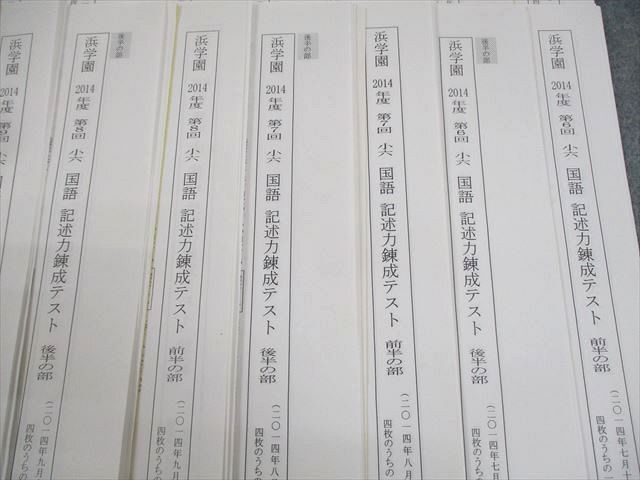 浜学園 2014年度 第6回 小六 国語 記述力錬成テスト 前半の部
(二〇一四年七月十
四枚のうちの一
後半の部
浜学園 2014年度 第6回 小六 国語 記述力錬成テスト 後半の部
(二〇一四年七月
四枚のうちの
浜学園 2014年度 第7回 小六 国語 記述力錬成テスト 前半の部
(二〇一四年八月
四枚のうちの一
後半の部
浜学園 2014年度 第7回 小六 国語 記述力錬成テスト 後半の部
(二〇一四年八
四枚のうちの
浜学園 2014年度 第8回 小六 国語 記述力錬成テスト 前半の部
(二〇一四年九月
四枚のうちの
後半の部
浜学園 2014年度 第8回 小六 国語 記述力錬成テスト 後半の部
(二〇一四年九月
四枚のうちの
浜学園 2014年度 第9回 小六 国